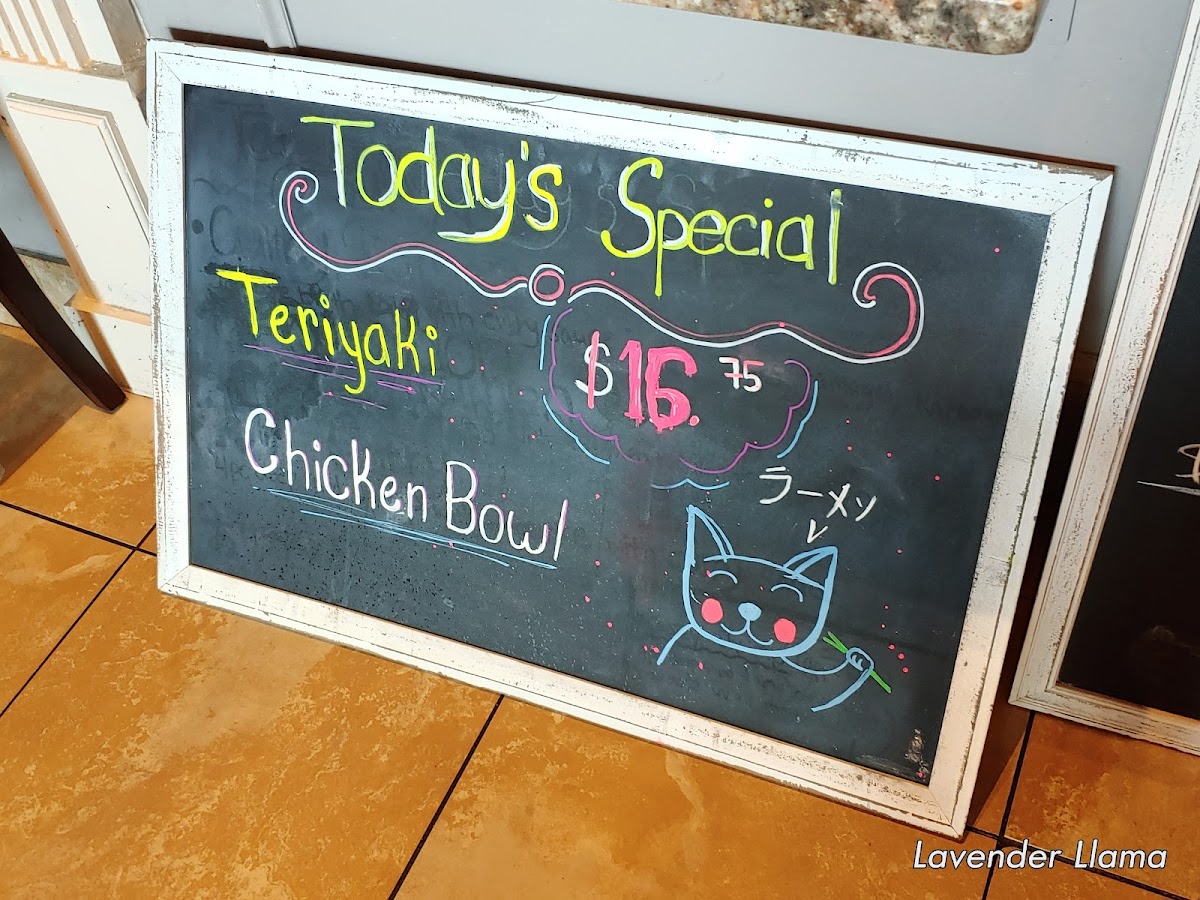 Today's Special
Teriyaki
$16.75
Chicken Bowl
ラーメン
Lavender Llama